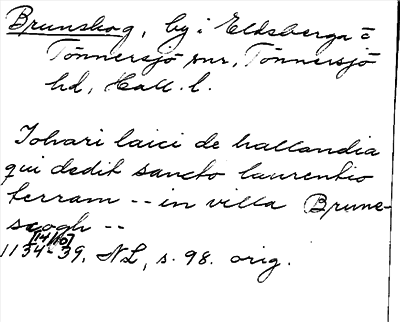 Brunskog, by i Eldsberga o
Tönnersjö snr, Tönnersjö
hd, Hall. l.
Tohari laici de hallandia
qui dedit sancto laurentio
terram -- in villa Brune-
scogh --
[14/10]
1134-39, NL, s. 98. orig.